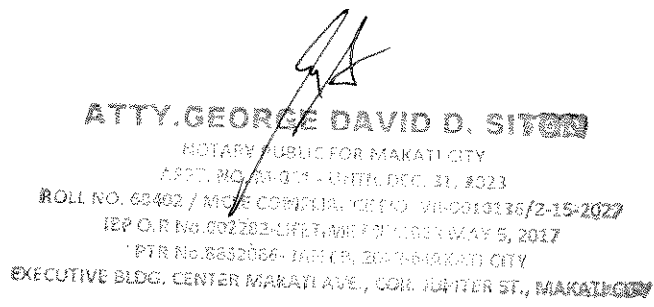 ATTY. GEORGE DAVID D. SITON
NOTARY PUBLIC FOR MAKATI CITY
APPT. NO. - UNTIL DEC. 31, 2023
ROLL NO. 68402 / MCLE COMPLIANCE NO. /2-15-2027
IBP O.R No.002282-LIFETIME MAY 5, 2017
PTR No. MAKATI CITY
EXECUTIVE BLDG. CENTER MAKATI AVE., COR. JUPITER ST., MAKATI CITY